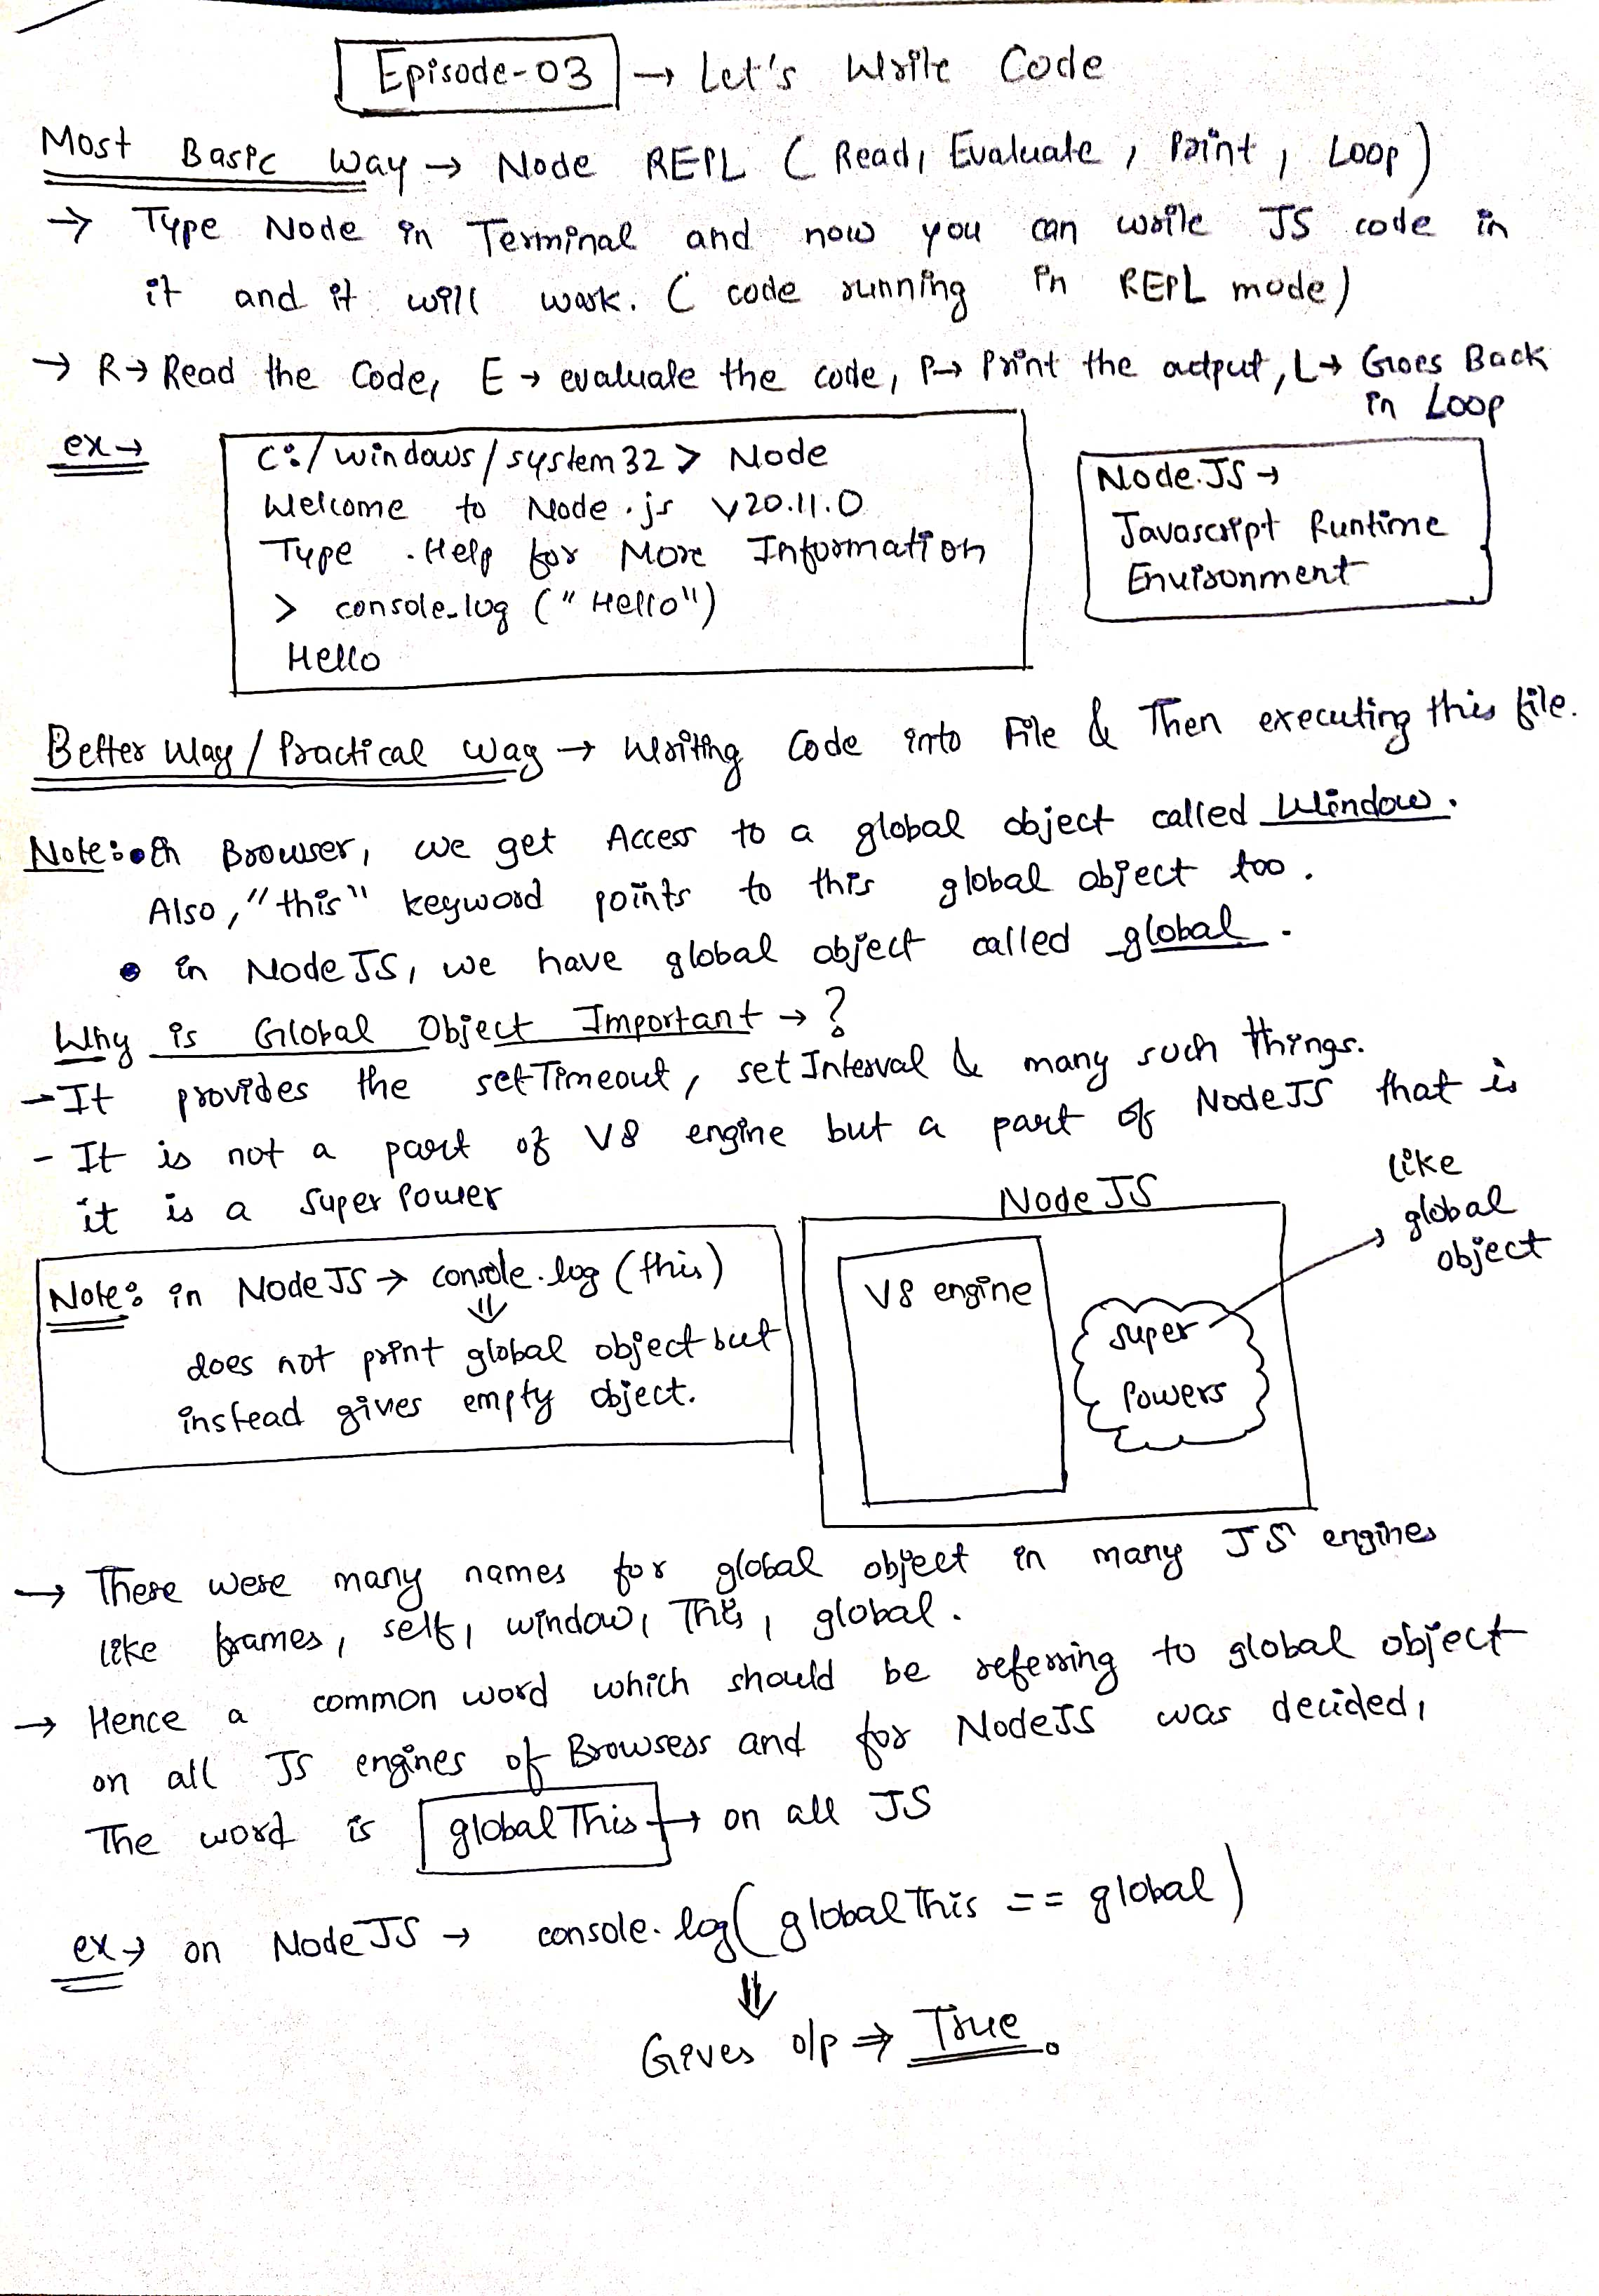 Episode-03 → Let's Write Code
Most Basic Way → Node REPL ( Read, Evaluate, Print, Loop )
→ Type Node in Terminal and now you can write JS code in
it and it will work. ( code running in REPL mode)
→ R→ Read the Code, E → evaluate the code, P→ Print the output, L→ Goes Back
in Loop
ex→
C:/windows/system32> Node
Welcome to Node.js v20.11.0
Type .Help for More Information
> console.log ("Hello")
Hello
Node.JS →
Javascript Runtime
Environment
Better Way / Practical way → Writing Code into File & Then executing this file.
Note: • In Browser, we get Access to a global object called Window.
Also, "this" keyword points to this global object too.
• in NodeJS, we have global object called global.
Why is Global Object Important → ?
→ It provides the setTimeout, setInterval & many such things.
- It is not a part of V8 engine but a part of NodeJS that is
it is a Super Power
Note: in NodeJS → console.log (this)
⇓
does not print global object but
instead gives empty object.
NodeJS
V8 engine
Super
Powers
like
global
object
→ There were many names for global object in many JS engines
like frames, self, window, This, global.
→ Hence a common word which should be referring to global object
on all JS engines of Browsers and for NodeJS was decided,
The word is globalThis → on all JS
ex→ on NodeJS → console.log( globalThis == global )
⇓
Gives o/p ⇒ True.